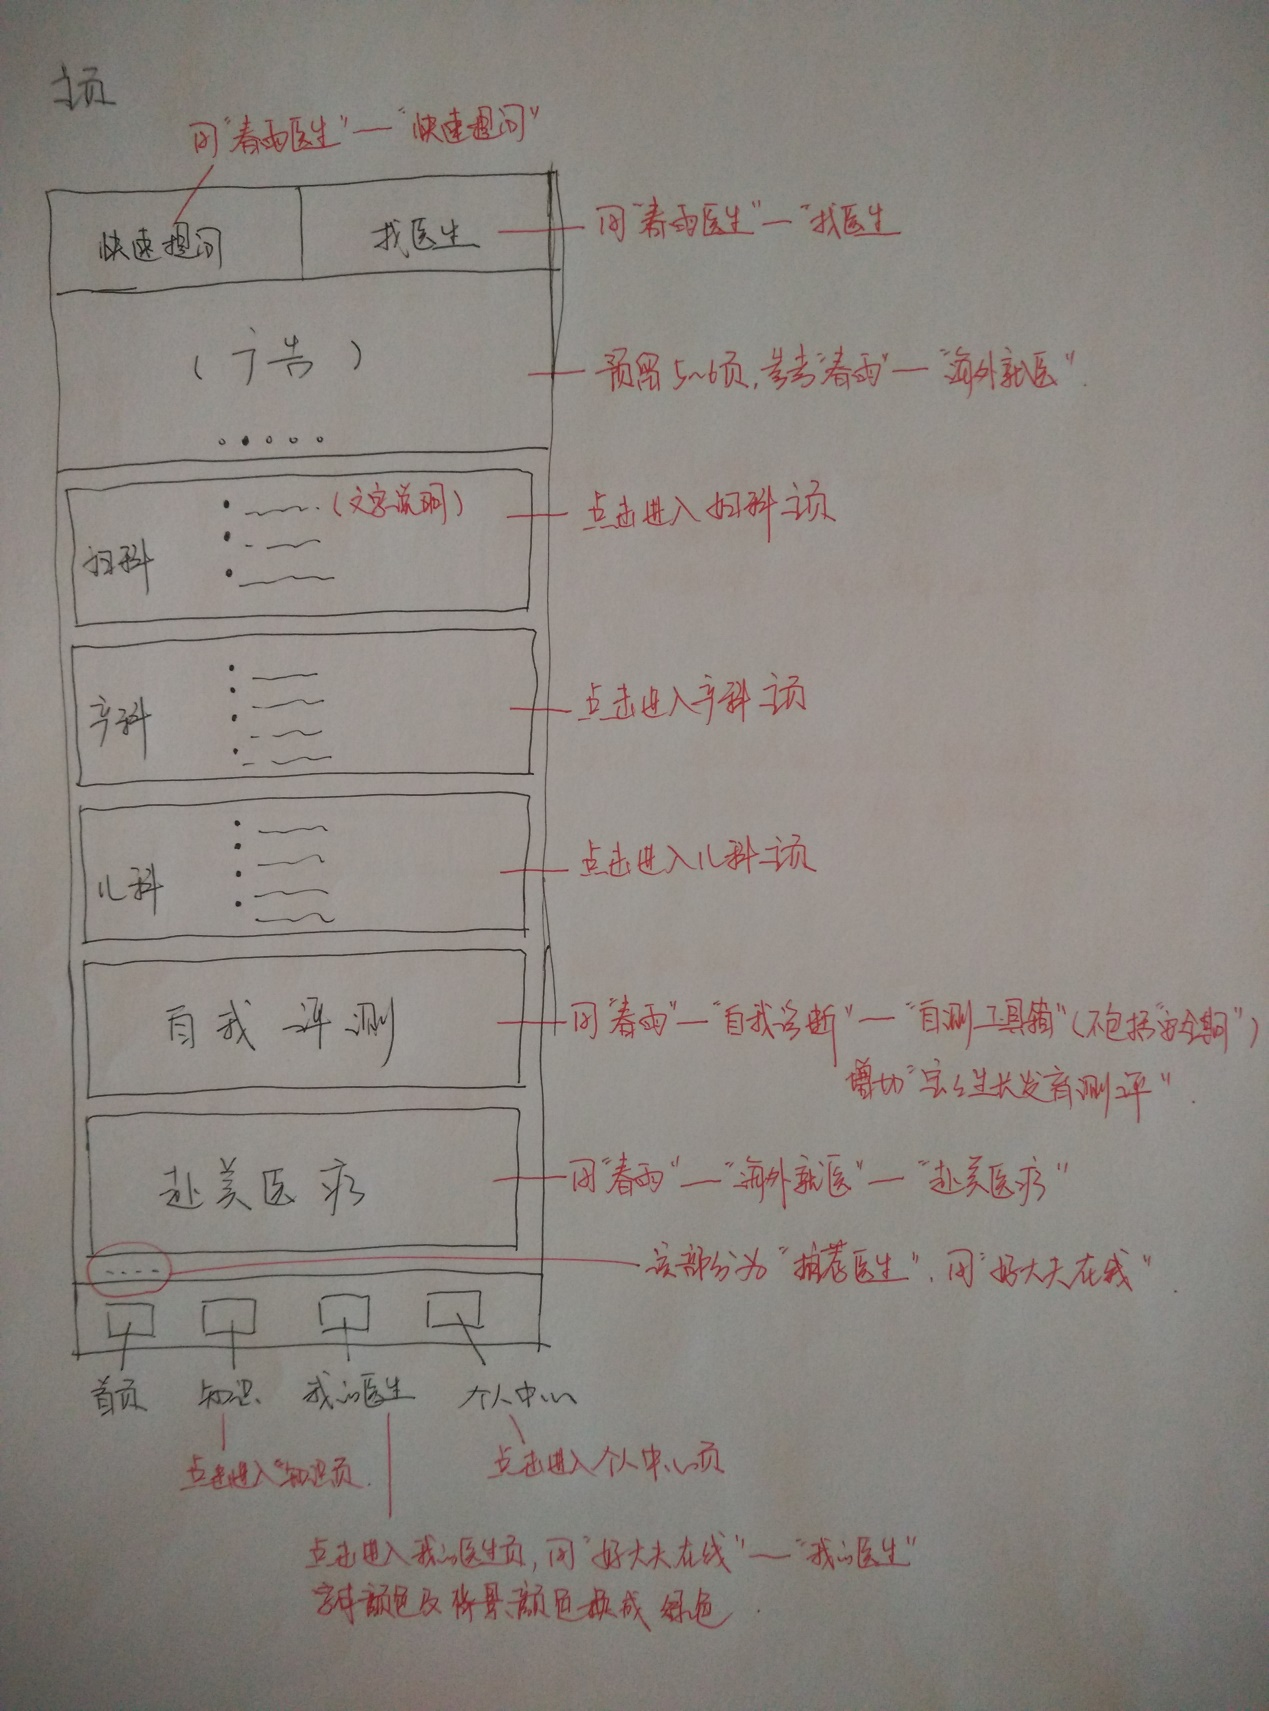 主页
同"春雨医生"—"快速提问"
快速提问
找医生
同"春雨医生"—"找医生
(广告)
预留5~6页,参考"春雨"—"海外就医".
妇科
(文字说明)
点击进入妇科主页
产科
点击进入产科主页
儿科
点击进入儿科主页
自我评测
同"春雨"—"自我诊断"—"自测工具箱"(不包括"安全期")
增加"宝宝生长发育测评".
赴美医疗
同"春雨"—"海外就医"—"赴美医疗"
该部分为"推荐医生",同"好大夫在线".
首页
知识
我的医生
个人中心
点击进入"知识页.
点击进入个人中心页
点击进入我的医生页,同"好大夫在线"—"我的医生"
字体颜色及背景颜色换成绿色.